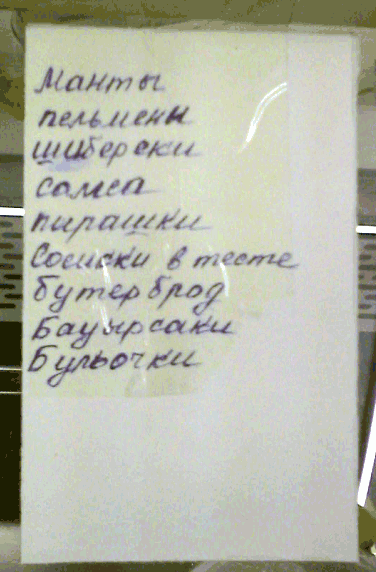 Манты
пельмены
шиберски
самса
пирашки
Сосиски в тесте
бутер брод
Бауырсаки
Бульочки